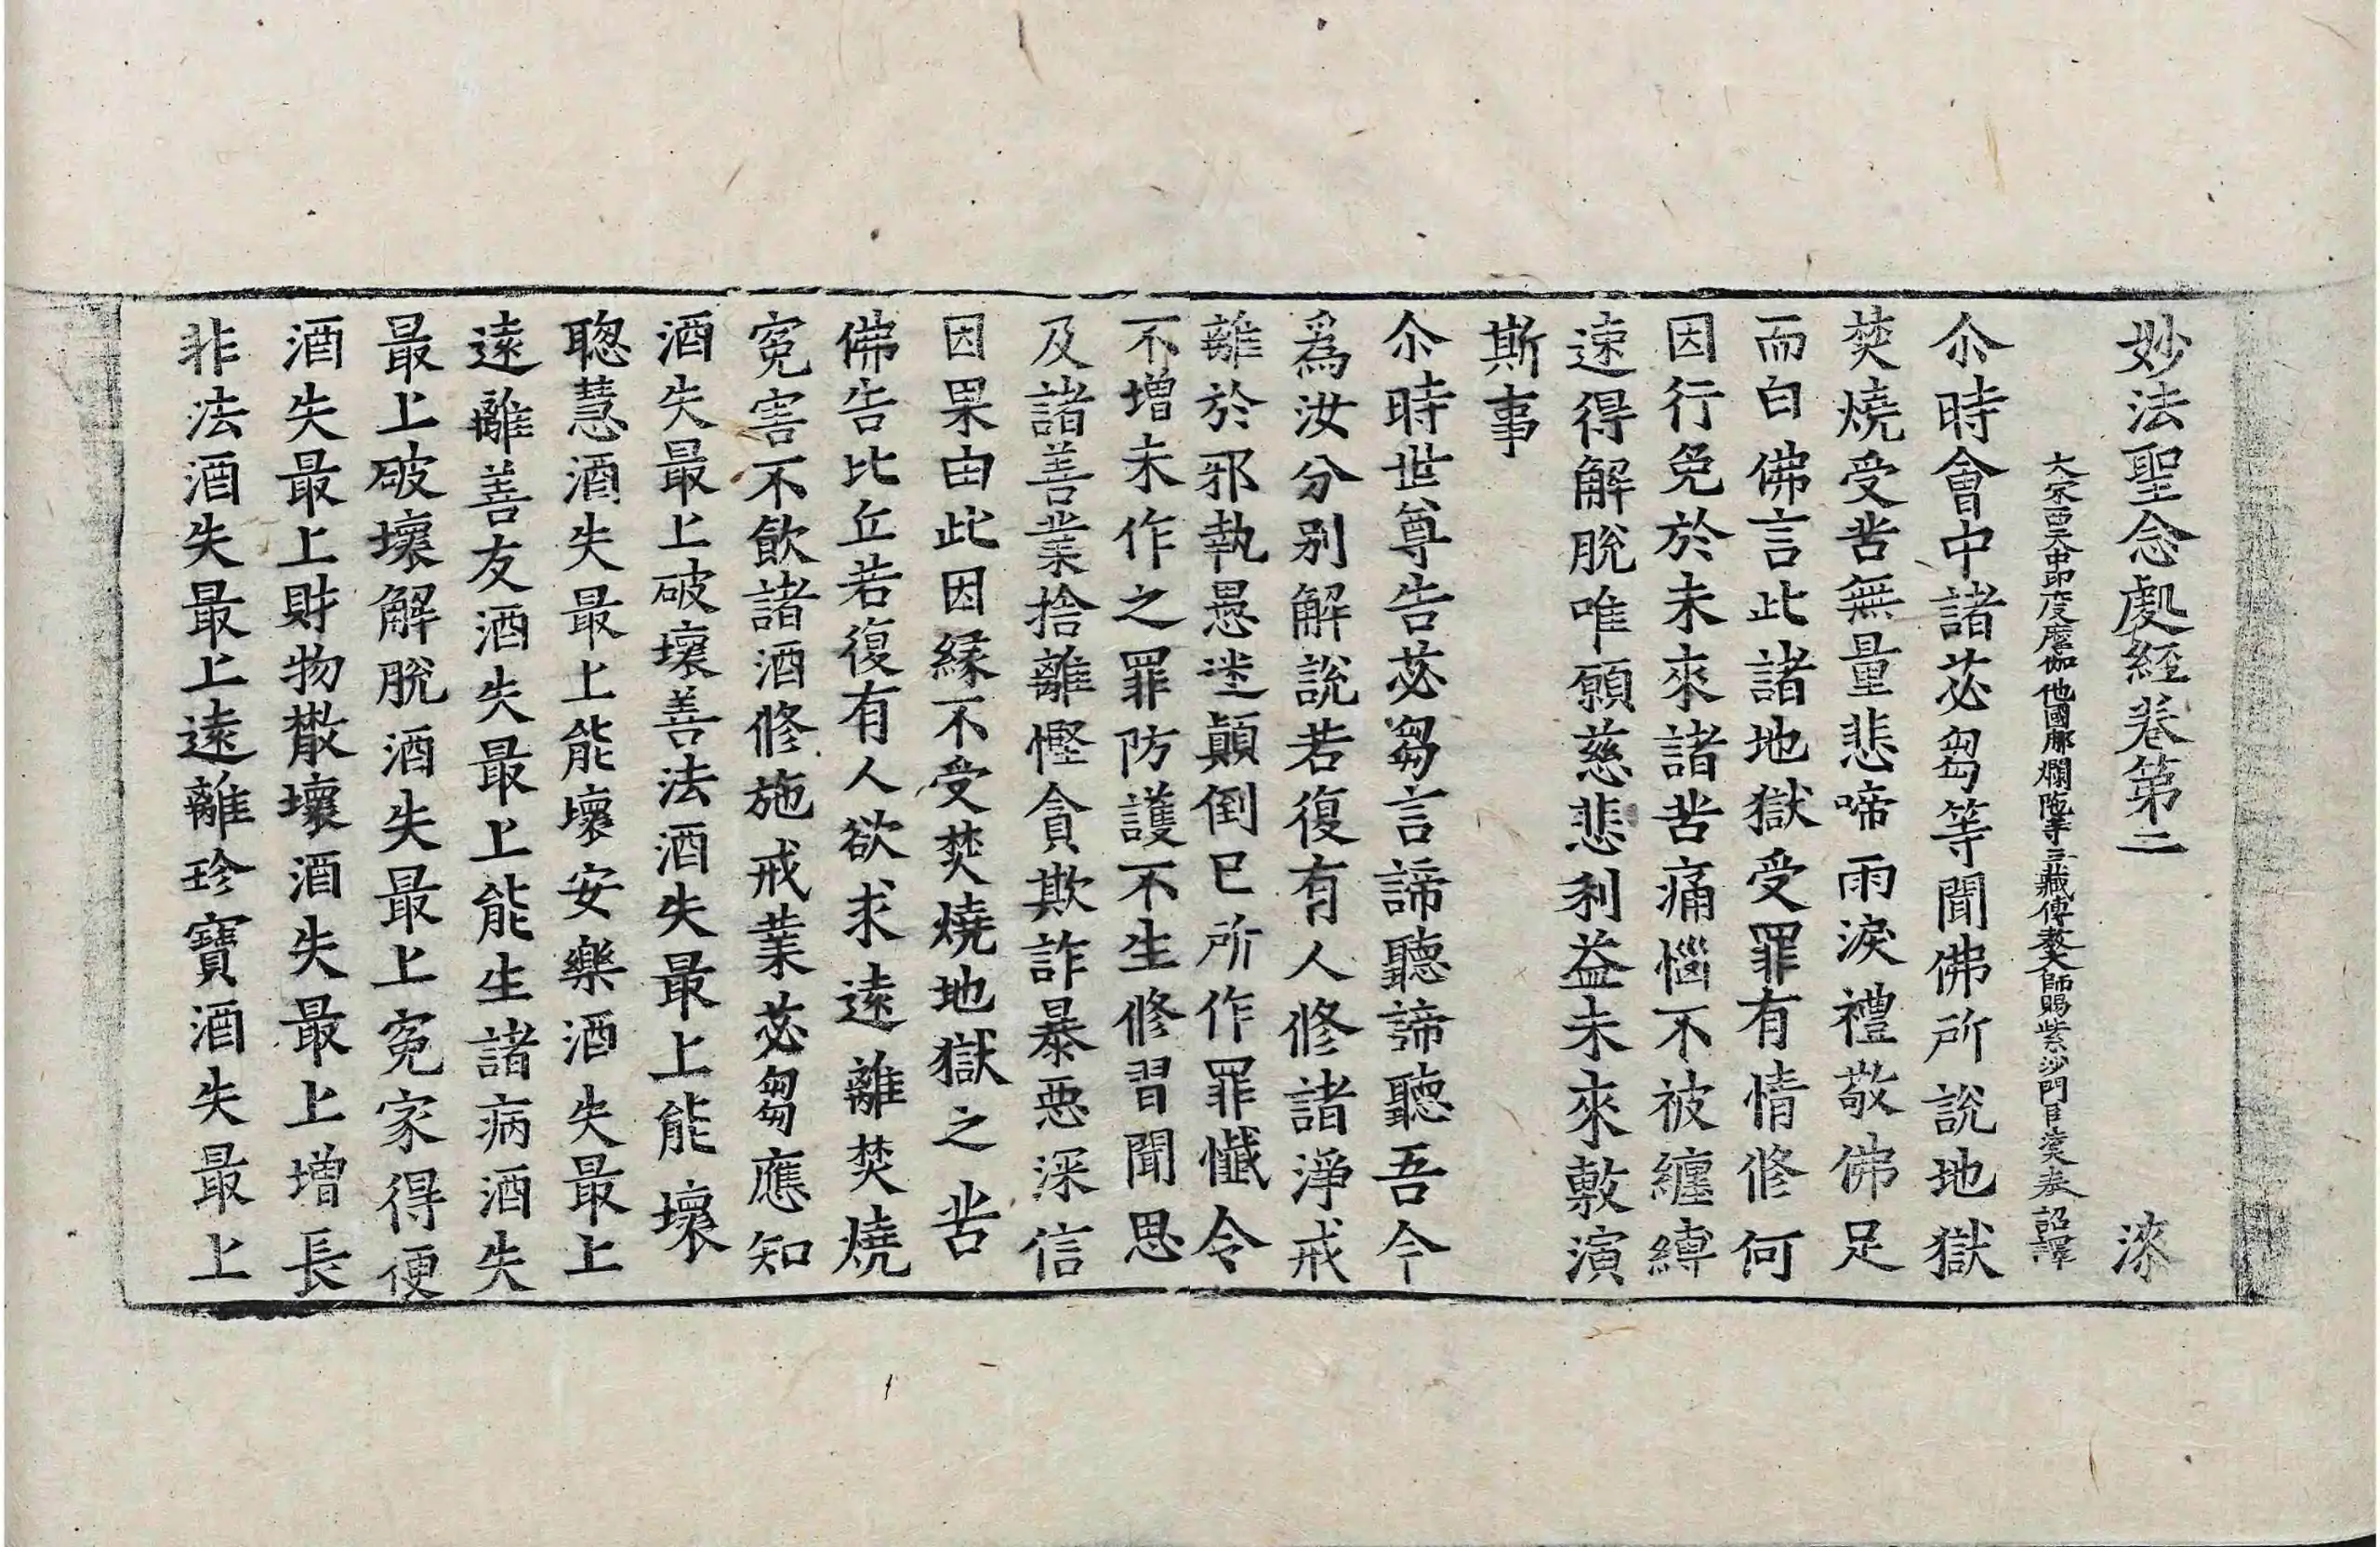 妙法聖念處經卷第二 漆
大宋西天中印度摩伽他國那爛陁寺三藏傳教大師賜紫沙門臣法天奉 詔譯
尒時會中諸苾芻等聞佛所說地獄
焚燒受苦無量悲啼雨淚禮敬佛足
而白佛言此諸地獄受罪有情修何
因行免於未來諸苦痛惱不被纏縛
速得解脫唯願慈悲利益未來敷演
斯事
尒時世尊告苾芻言諦聽諦聽吾今
爲汝分別解說若復有人修諸淨戒
離於邪執愚迷顛倒已所作罪懺令
不增未作之罪防護不生修習聞思
及諸善業捨離慳貪欺詐暴惡深信
因果由此因緣不受焚燒地獄之苦
佛告比丘若復有人欲求遠離焚燒
寃害不飲諸酒修施戒業苾芻應知
酒失最上破壞善法酒失最上能壞
聦慧酒失最上能壞安樂酒失最上
遠離善友酒失最上能生諸病酒失
最上破壞解脫酒失最上寃家得便
酒失最上財物散壞酒失最上增長
非法酒失最上遠離珍寶酒失最上